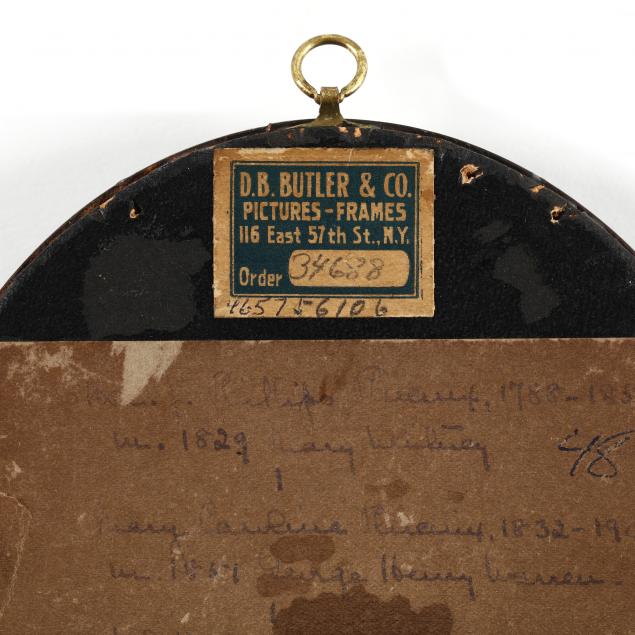 D.B. BUTLER & CO.
PICTURES-FRAMES
116 East 57th St., N.Y.
Order 34688
465756106
Phillips Phoenix, 1788-18
m. 1829 Mary Whitney
48
Mary Caroline Phoenix, 1832-19
m. 1851 George Henry Warren.